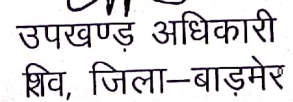 उपखण्ड़ अधिकारी
शिव, जिला–बाड़मेर